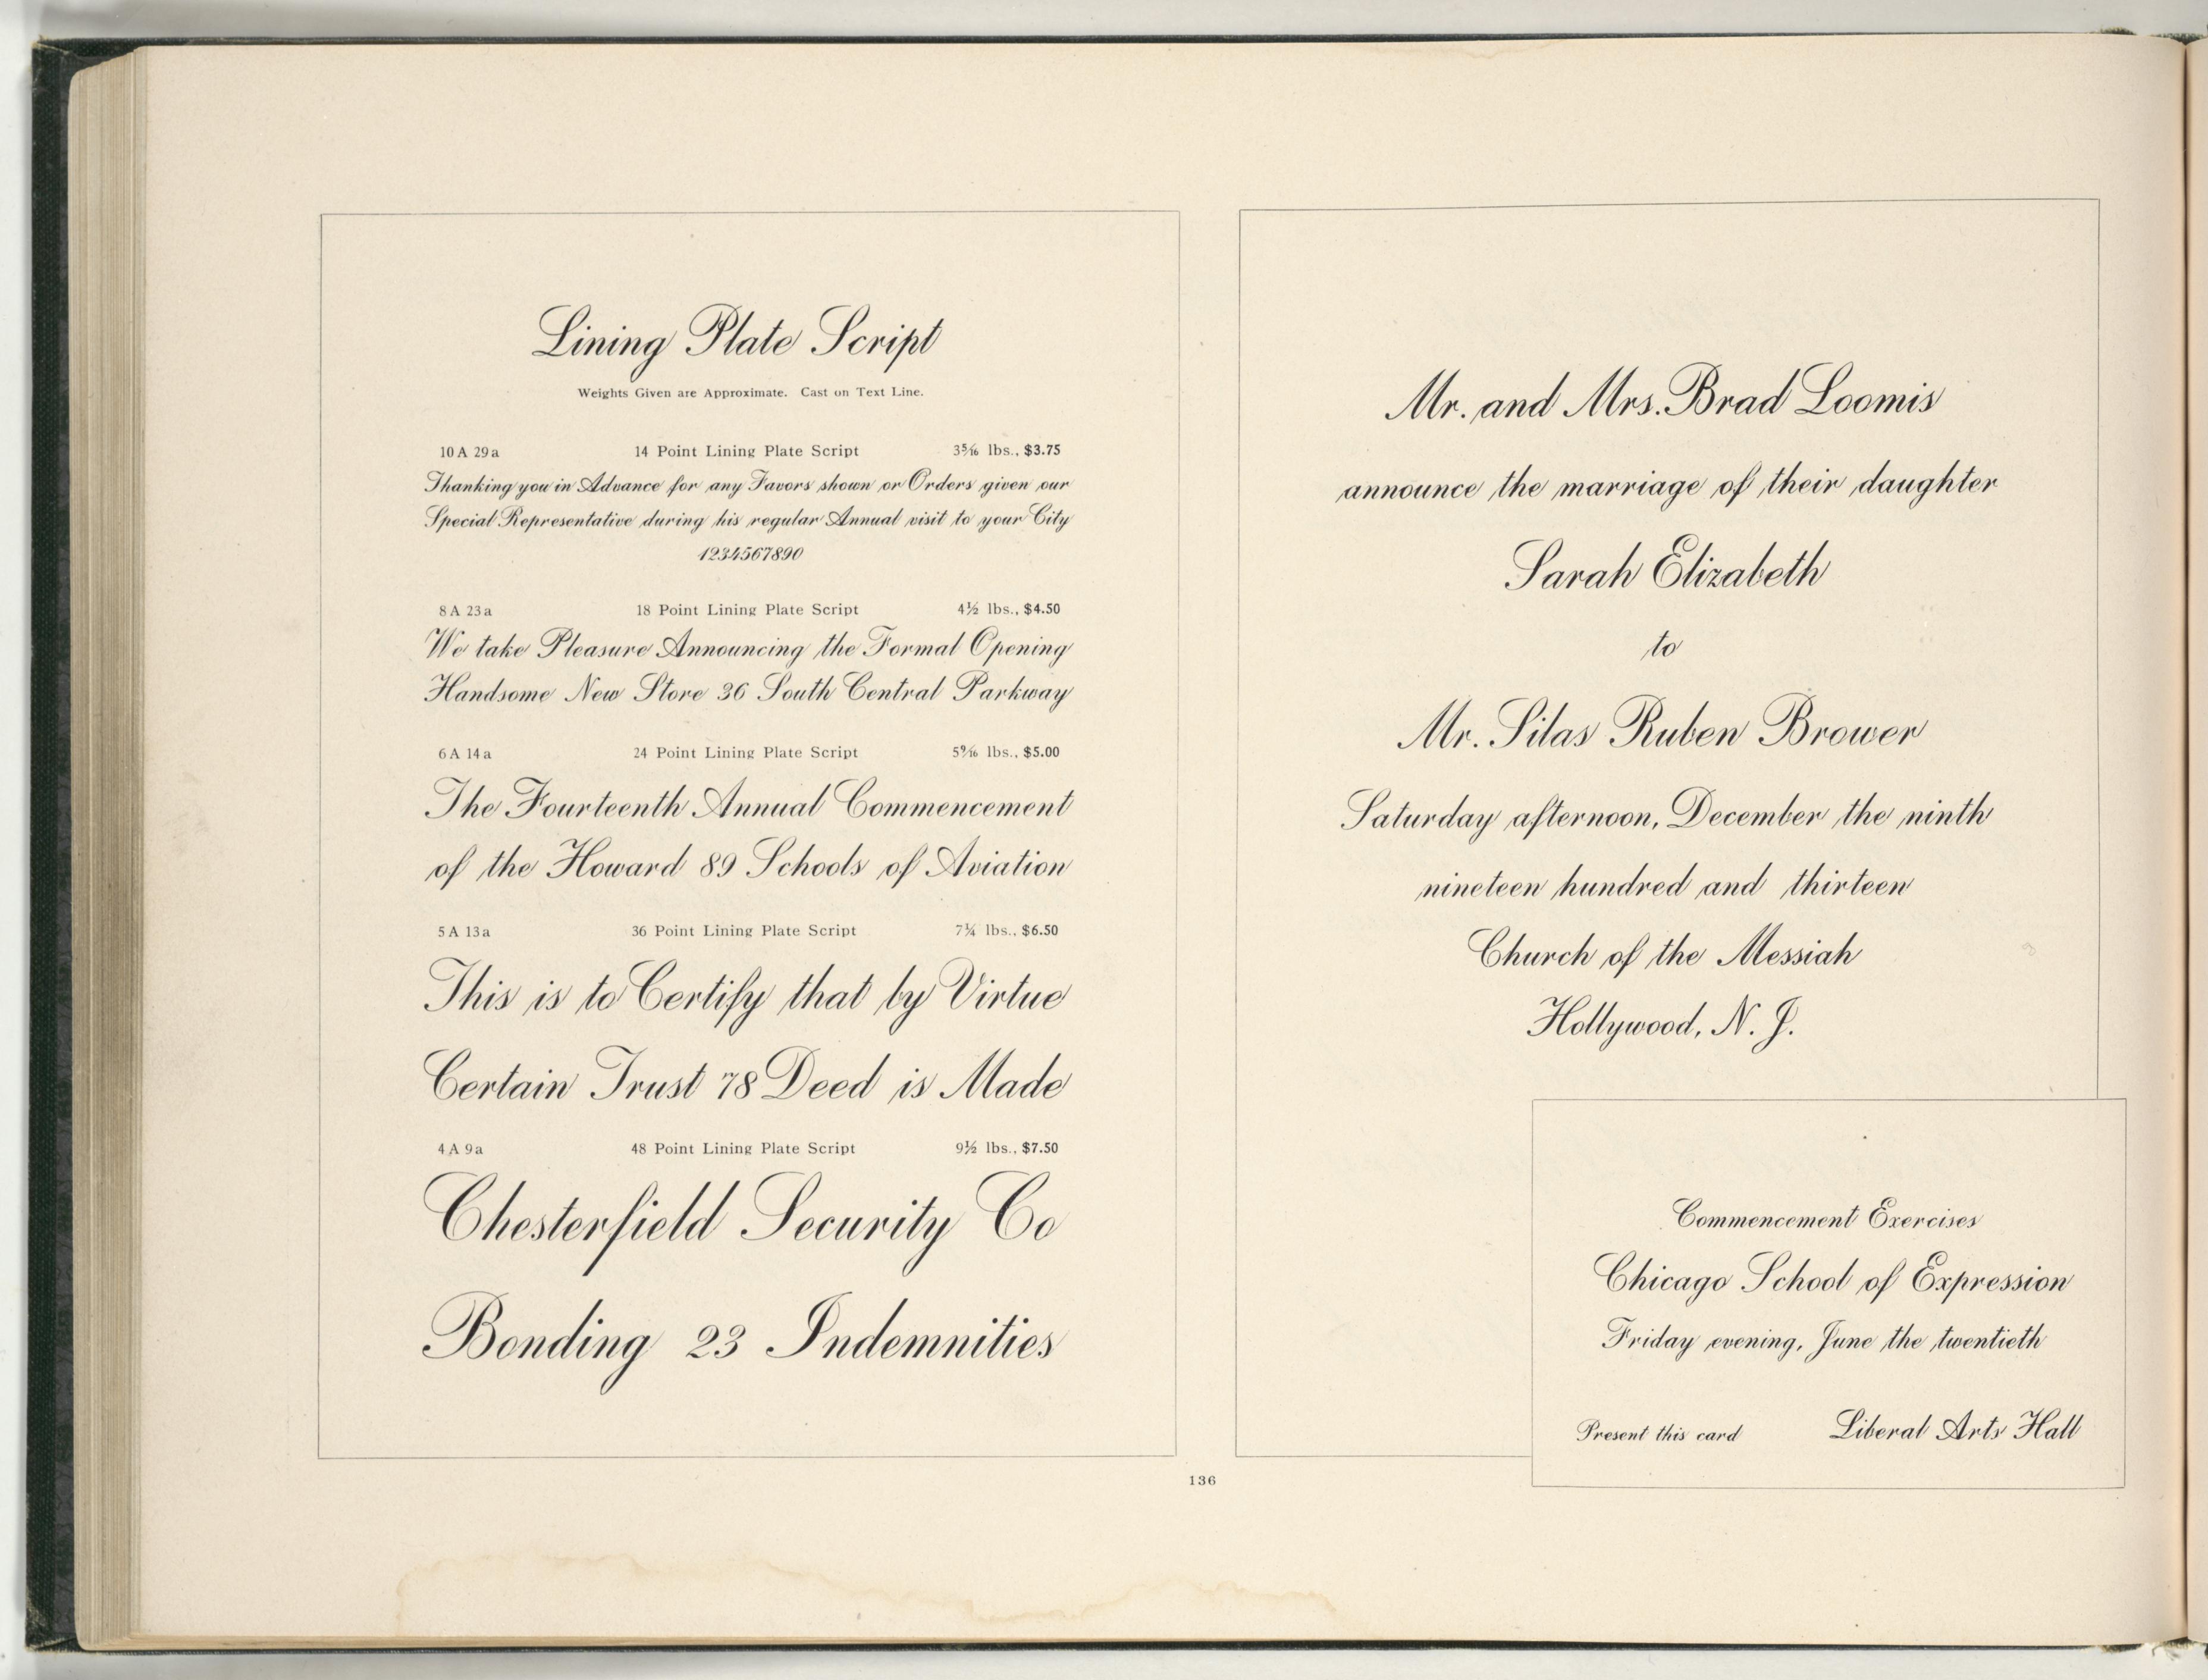 Lining Plate Script
Weights Given are Approximate. Cast on Text Line.
10 A 29 a 14 Point Lining Plate Script 3 5/16 lbs., $3.75
Thanking you in Advance for any Favors shown or Orders given our
Special Representative during his regular Annual visit to your City
1234567890
8 A 23 a 18 Point Lining Plate Script 4½ lbs., $4.50
We take Pleasure Announcing the Formal Opening
Handsome New Store 36 South Central Parkway
6 A 14 a 24 Point Lining Plate Script 5 9/16 lbs., $5.00
The Fourteenth Annual Commencement
of the Howard 89 Schools of Aviation
5 A 13 a 36 Point Lining Plate Script 7¼ lbs., $6.50
This is to Certify that by Virtue
Certain Trust 78 Deed is Made
4 A 9 a 48 Point Lining Plate Script 9½ lbs., $7.50
Chesterfield Security Co
Bonding 23 Indemnities
Mr. and Mrs. Brad Loomis
announce the marriage of their daughter
Sarah Elizabeth
to
Mr. Silas Ruben Brower
Saturday afternoon, December the ninth
nineteen hundred and thirteen
Church of the Messiah
Hollywood, N. J.
Commencement Exercises
Chicago School of Expression
Friday evening, June the twentieth
Present this card Liberal Arts Hall
136